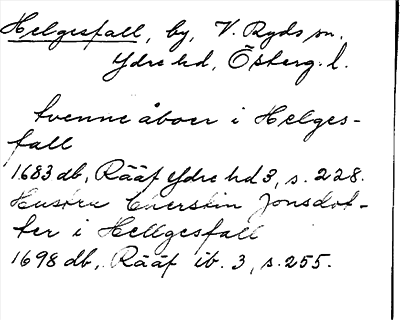 Helgesfall, by, V. Ryds sn.
Ydre hd, Österg. l.
tvenne åboer i Helges-
fall
1683 db, Rääf Ydre hd 3, s. 228.
Hustru Cherstin Jonsdot-
ter i Hellgesfall
1698 db, Rääf ib. 3, s. 255.